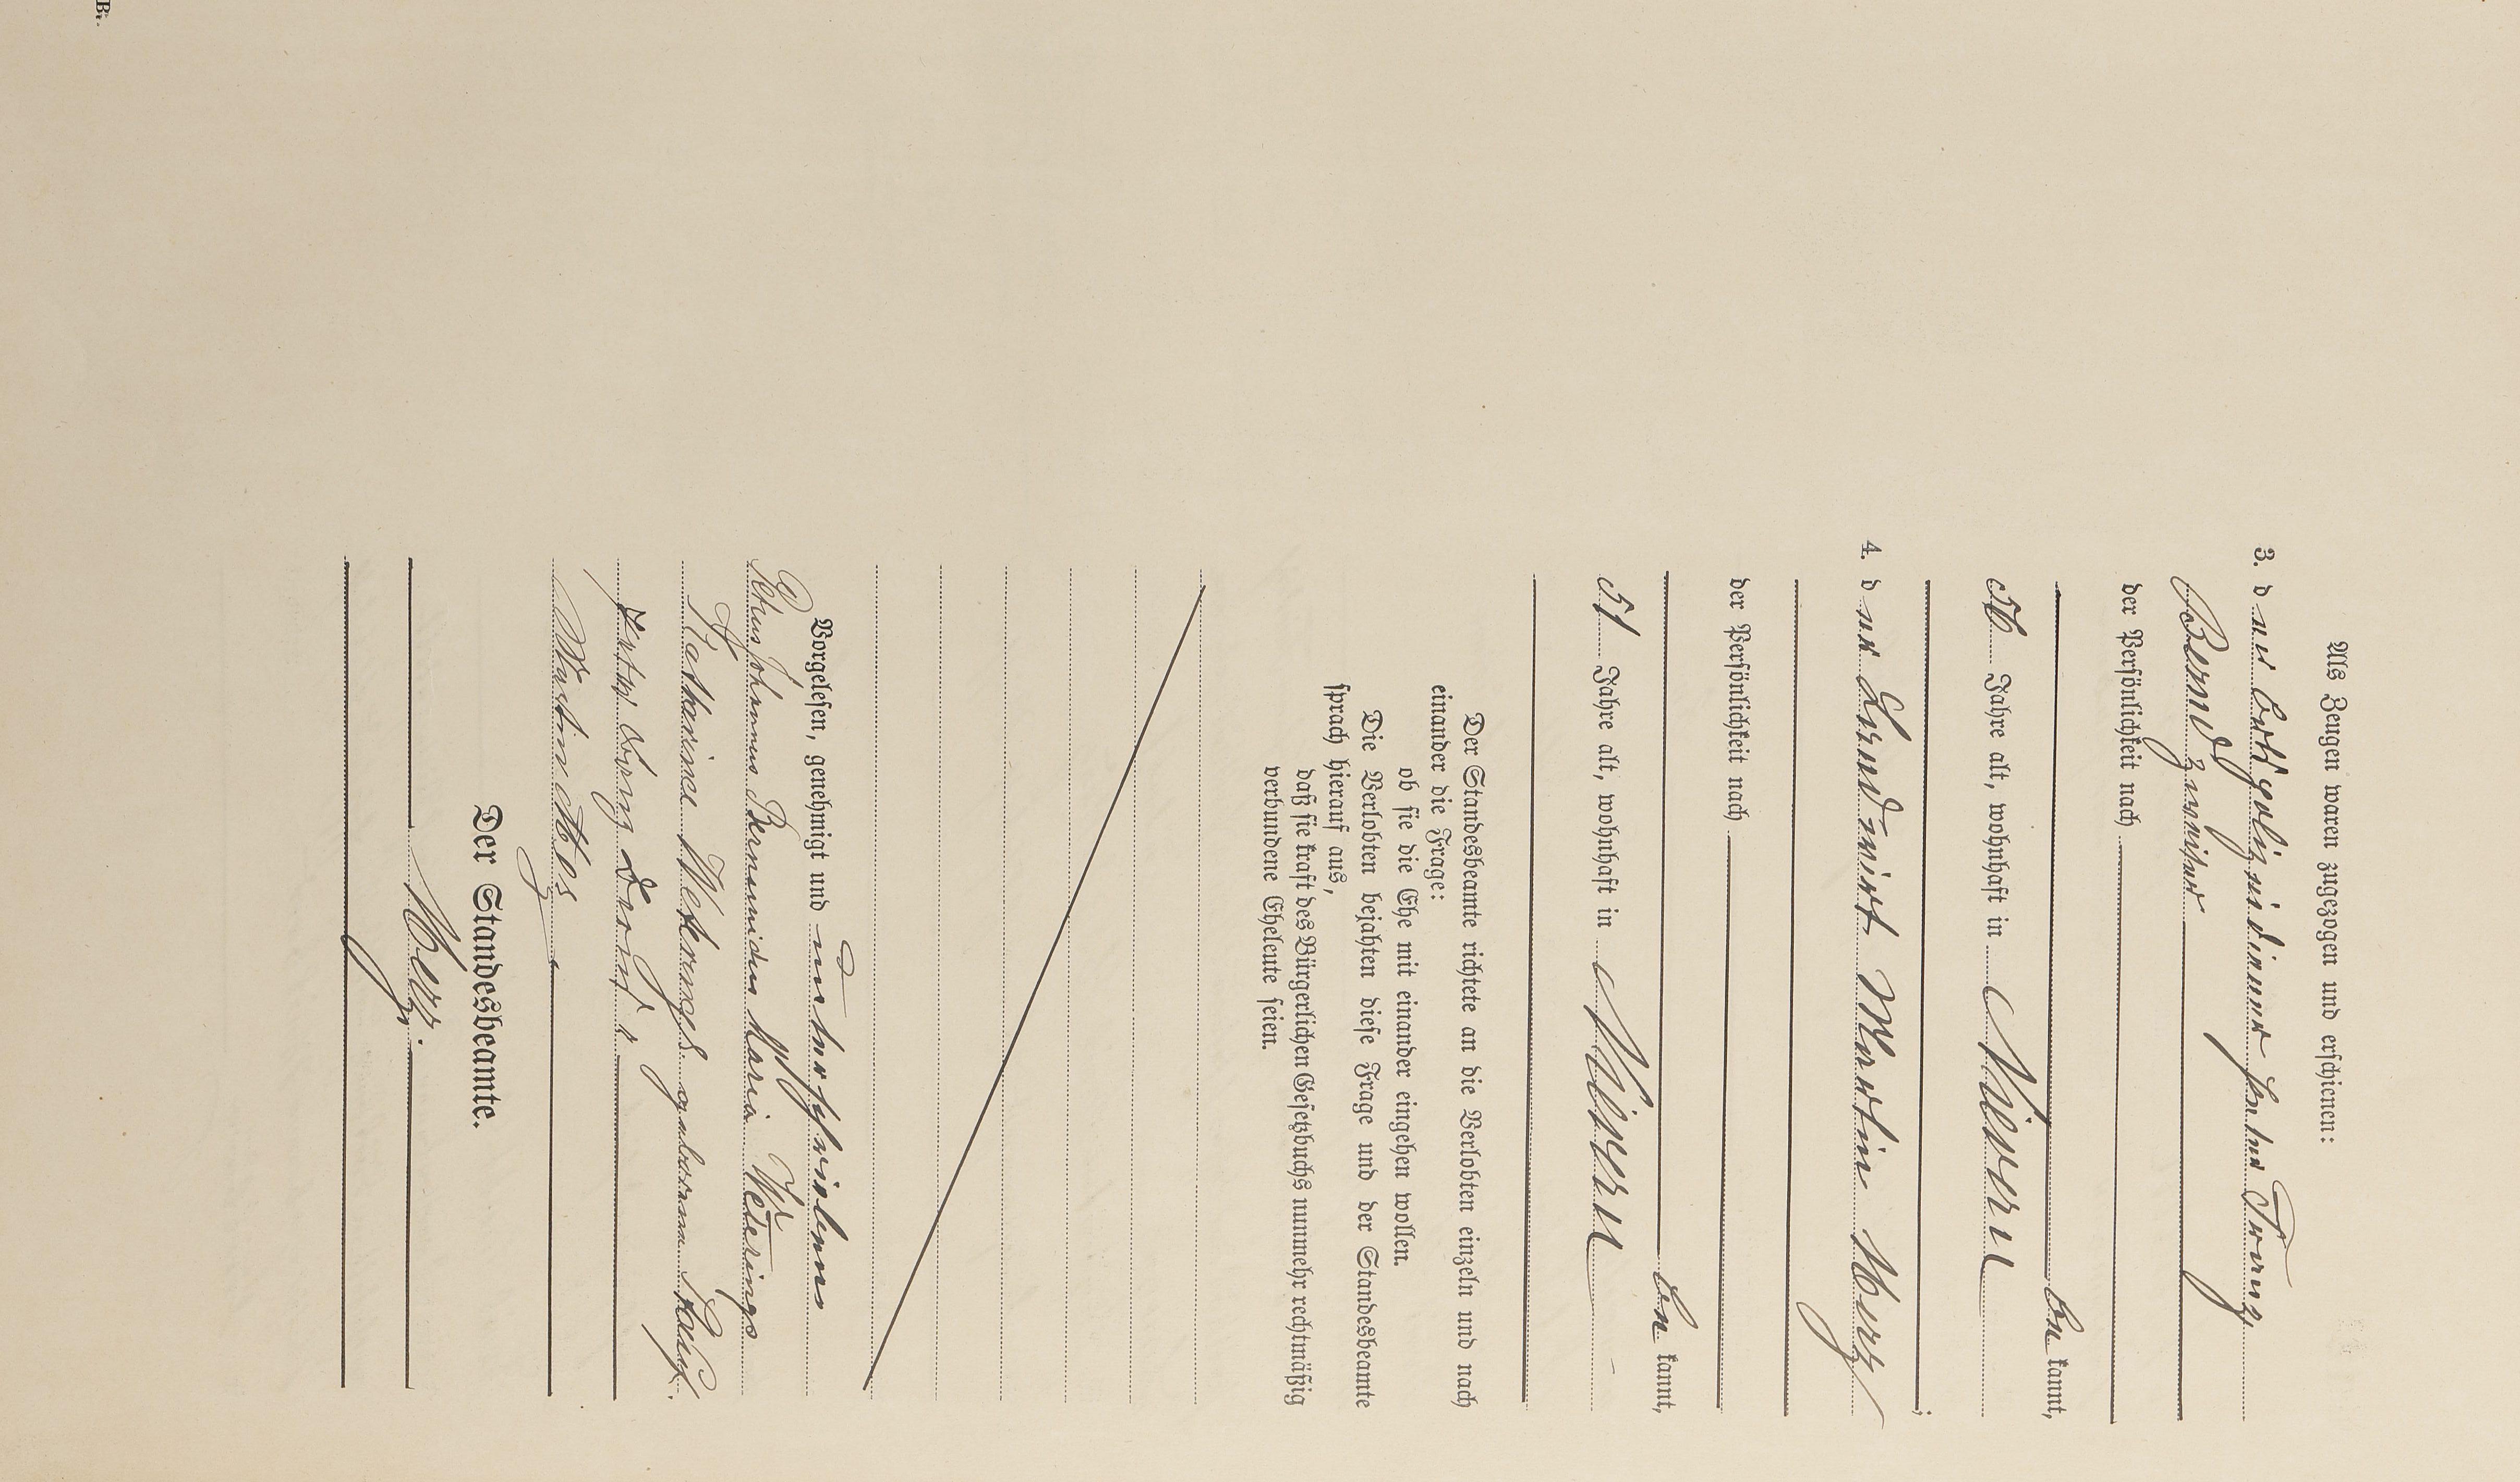 Als Zeugen waren zugezogen und erschienen:
3. der Ortsgerichtsdiener Peter Franz
Brand zweiter
der Persönlichkeit nach
be kannt,
56 Jahre alt, wohnhaft in Nievern
4. der Landwirt Martin Merz
;
der Persönlichkeit nach
be kannt,
51 Jahre alt, wohnhaft in Nievern
Der Standesbeamte richtete an die Verlobten einzeln und nach
einander die Frage:
ob sie die Ehe mit einander eingehen wollen.
Die Verlobten bejahten diese Frage und der Standesbeamte
sprach hierauf aus,
daß sie kraft des Bürgerlichen Gesetzbuchs nunmehr rechtmäßig
verbundene Eheleute seien.
Vorgelesen, genehmigt und unterschrieben
Petrus Johannes Maria Weterings
Katharina Weterings geborene
Peter Franz Brand
Martin Merz
Der Standesbeamte.
Merz.
Br.